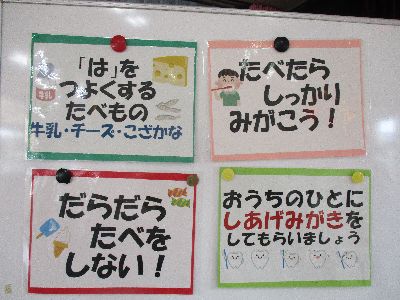 「は」を
つよくする
たべもの
牛乳・チーズ・こざかな
牛乳
たべたら
しっかり
みがこう!
だらだら
たべを
しない!
おうちのひとに
しあげみがきを
してもらいましょう